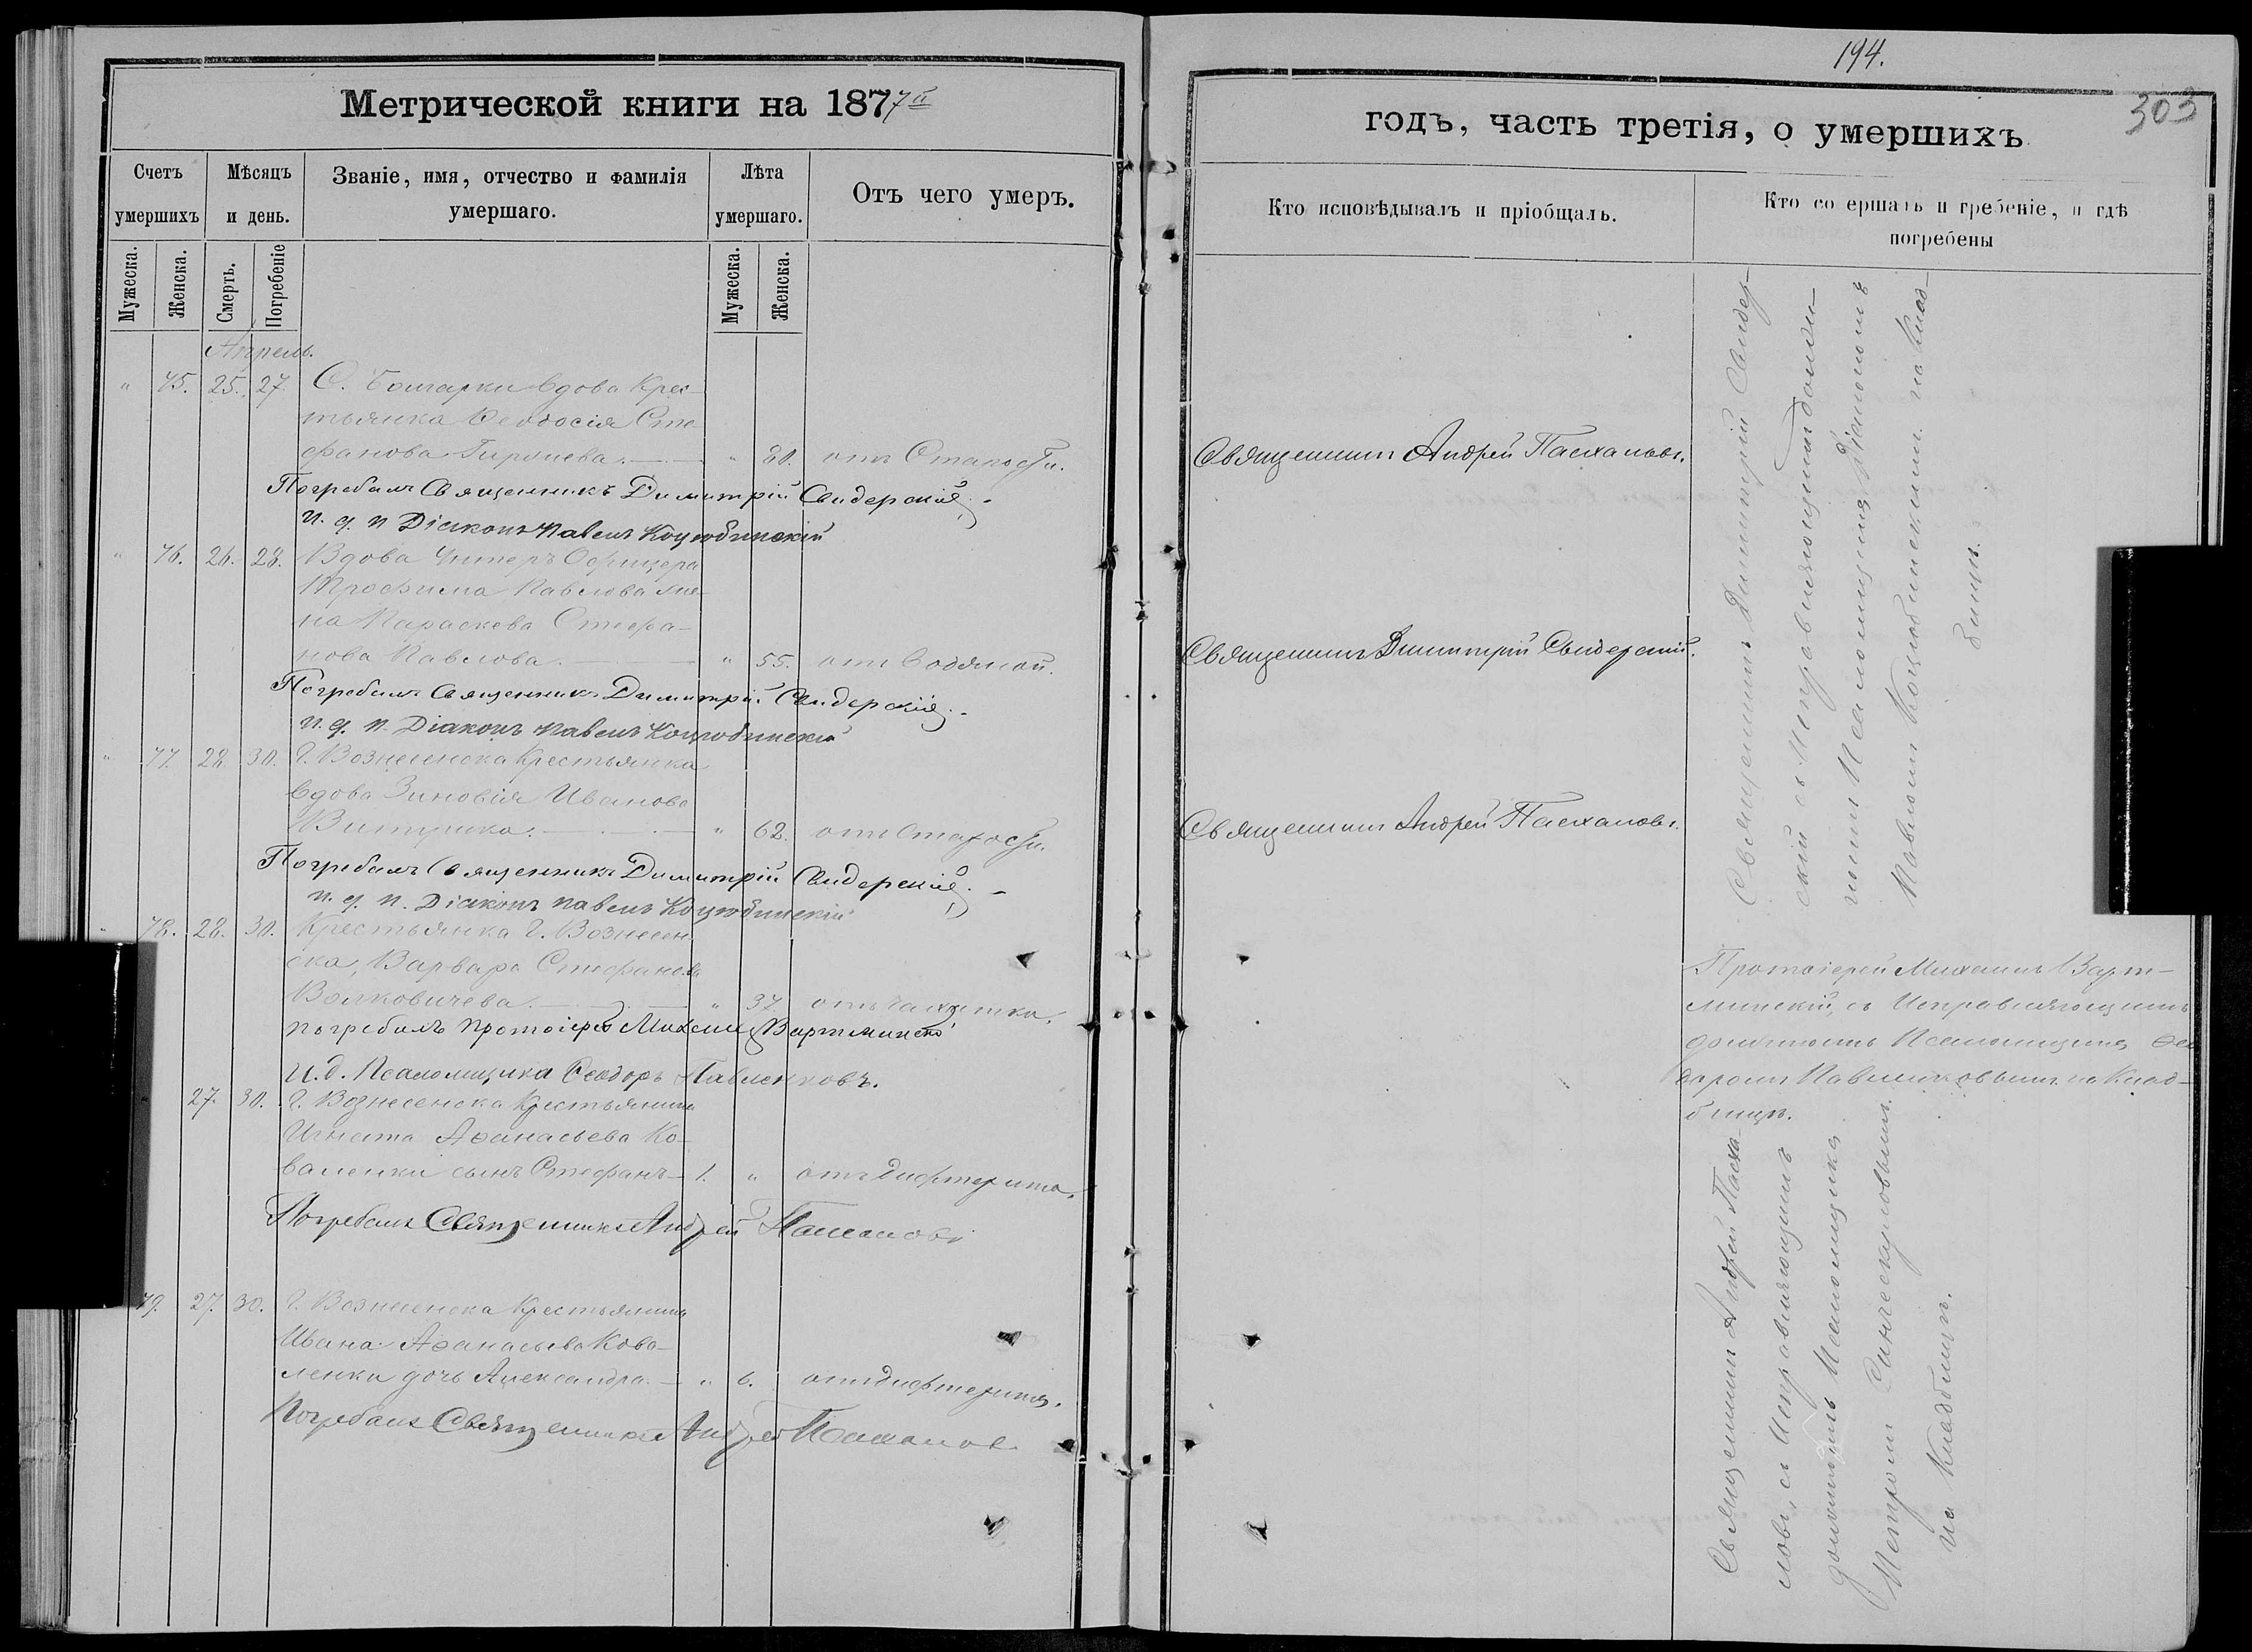 Метрической книги на 1877й
Счетъ умершихъ
Мѣсяцъ и день.
Званіе, имя, отчество и фамилія умершаго.
Лѣта умершаго.
Отъ чего умеръ.
Мужеска.
Женска.
Смерть.
Погребеніе
Мужеска.
Женска.
Апрель.
" 75. 25. 27. С. Болгарки вдова Крес-
тьянка Ѳеодосія Сте
фанова " 80. отъ Старости.
Погребалъ Священникъ Димитрій Свидерскій.
и. д. п Діаконъ Павелъ Коцюбинскій
" 76. 26. 28. Вдова Унтеръ Офицера
Трофима Павлова же-
на Параскева Стефа-
нова Павлова " 55. отъ водяной.
Погребалъ Священникъ Димитрій Свидерскій.
и. д. п. Діаконъ Павелъ Коцюбинскій
" 77. 28. 30. Г. Вознесенска Крестьянка
вдова Зиновія Иванова
" 62. отъ старости.
Погребалъ Священникъ Димитрій Свидерскій.
и. д. п. Діаконъ Павелъ Коцюбинскій
" 78. 28. 30. Крестьянка Г. Вознесен-
ска, Варвара Стефанова
Волковичева " 37 отъ чахотки.
погребалъ протоіерей Михаилъ Вартминскій
И. д. Псаломщика Ѳеодоръ Павленковъ.
27. 30. Г. Вознесенска Крестьянина
Игната Аѳанасьева Ко-
валенки сынъ Стефанъ 1. " отъ дифтерита.
Погребалъ Священникъ Андрей Пасхаловъ
79. 27. 30. Г. Вознесенска Крестьянина
Ивана Аѳанасьева Кова-
ленки дочь Александра " 6. отъ дифтерита.
Погребалъ Священникъ Андрей Пасхаловъ
194.
303
годъ, часть третія, о умершихъ
Кто исповѣдывалъ и пріобщалъ.
Кто со ершалъ п гребеніе, и гдѣ
погребены
Священникъ Андрей Пасхаловъ.
Священникъ Димитрій Свидерскій.
Священникъ Андрей Пасхаловъ.
Священникъ Димитрій Свидер-
скій съ Исправляющимъ долж-
ность Псаломщика Діакономъ
Павломъ Коцюбинскимъ на клад-
бищѣ.
Протоіерей Михаилъ Варт-
минскій, съ Исправляющимъ
должность Псаломщика Ѳео
доромъ Павленковымъ на Клад-
бищѣ.
Священникъ Андрей Пасха-
ловъ, съ Исправляющимъ
должность Псаломщика
Петромъ
на Кладбищѣ.